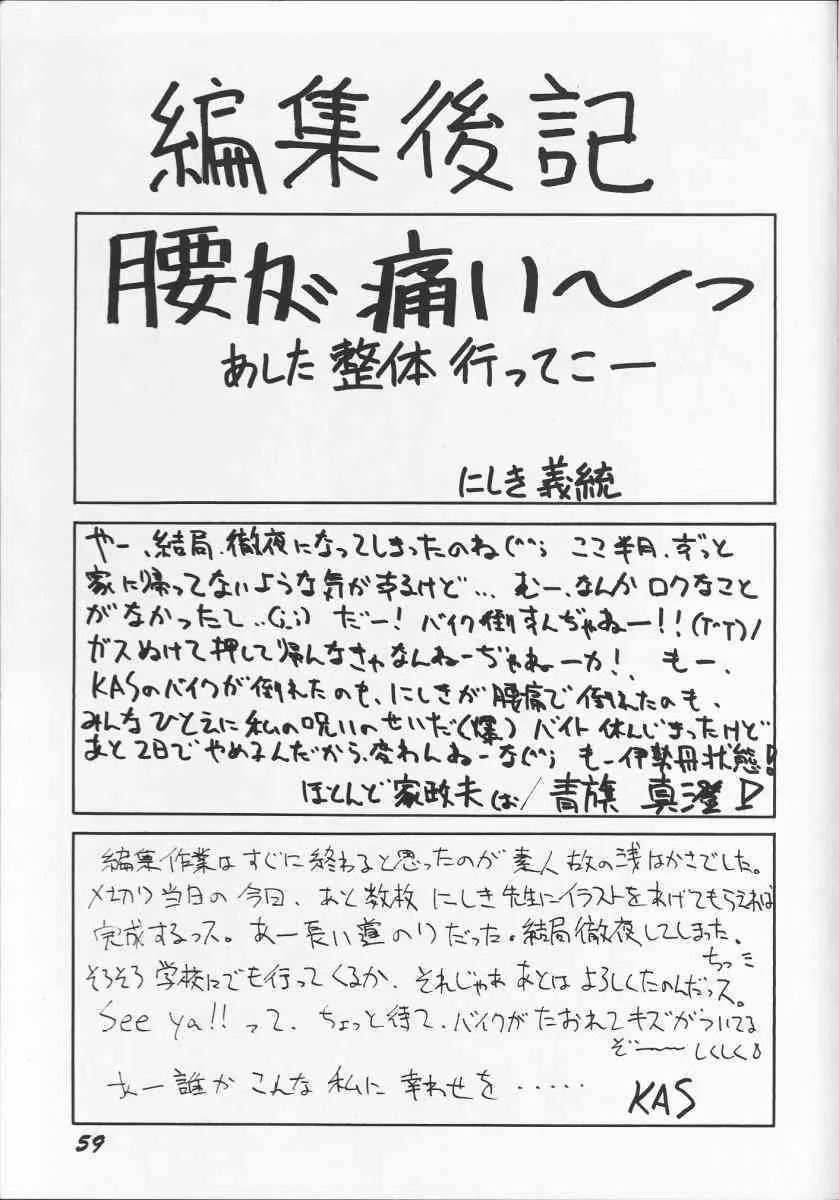 編集後記
腰が痛い〜っ
あした整体行ってこー
にしき義統
やー、結局、徹夜になってしまったのね(^^; ここ半月、ずっと
家に帰ってないような気がするけど… むー、なんかロクなこと
がなかったて‥(;_;) だー! バイク倒すんぢゃねー!!(T^T)ノ
ガスぬけて押して帰んなきゃなんねーぢゃねーカ!. もー、
KASのバイクが倒れたのも、にしきが腰痛で倒れたのも、
みんなひとえに私の呪いのせいだ(爆) バイト休んじまったけど
あと2日でやめるんだから、変わんねーな(^^; もー伊勢丹状態!
ほとんど家政夫(お/青旗 真澄
編集作業はすぐに終わると思ったのが素人故の浅はかさでした。
〆切り当日の今日、あと数枚にしき先生にイラストをあげてもらえれば
完成するっス。あー長い道のりだった。結局徹夜してしまった。
ちっミ
そろそろ学校にでも行ってくるか、それじゃああとはよろしくたのんだっス。
See ya!! って、ちょっと待て、バイクがたおれてキズがついてる
ぞ〜〜 しくしく
あー誰かこんな私に幸わせを・・・・・
KAS
59